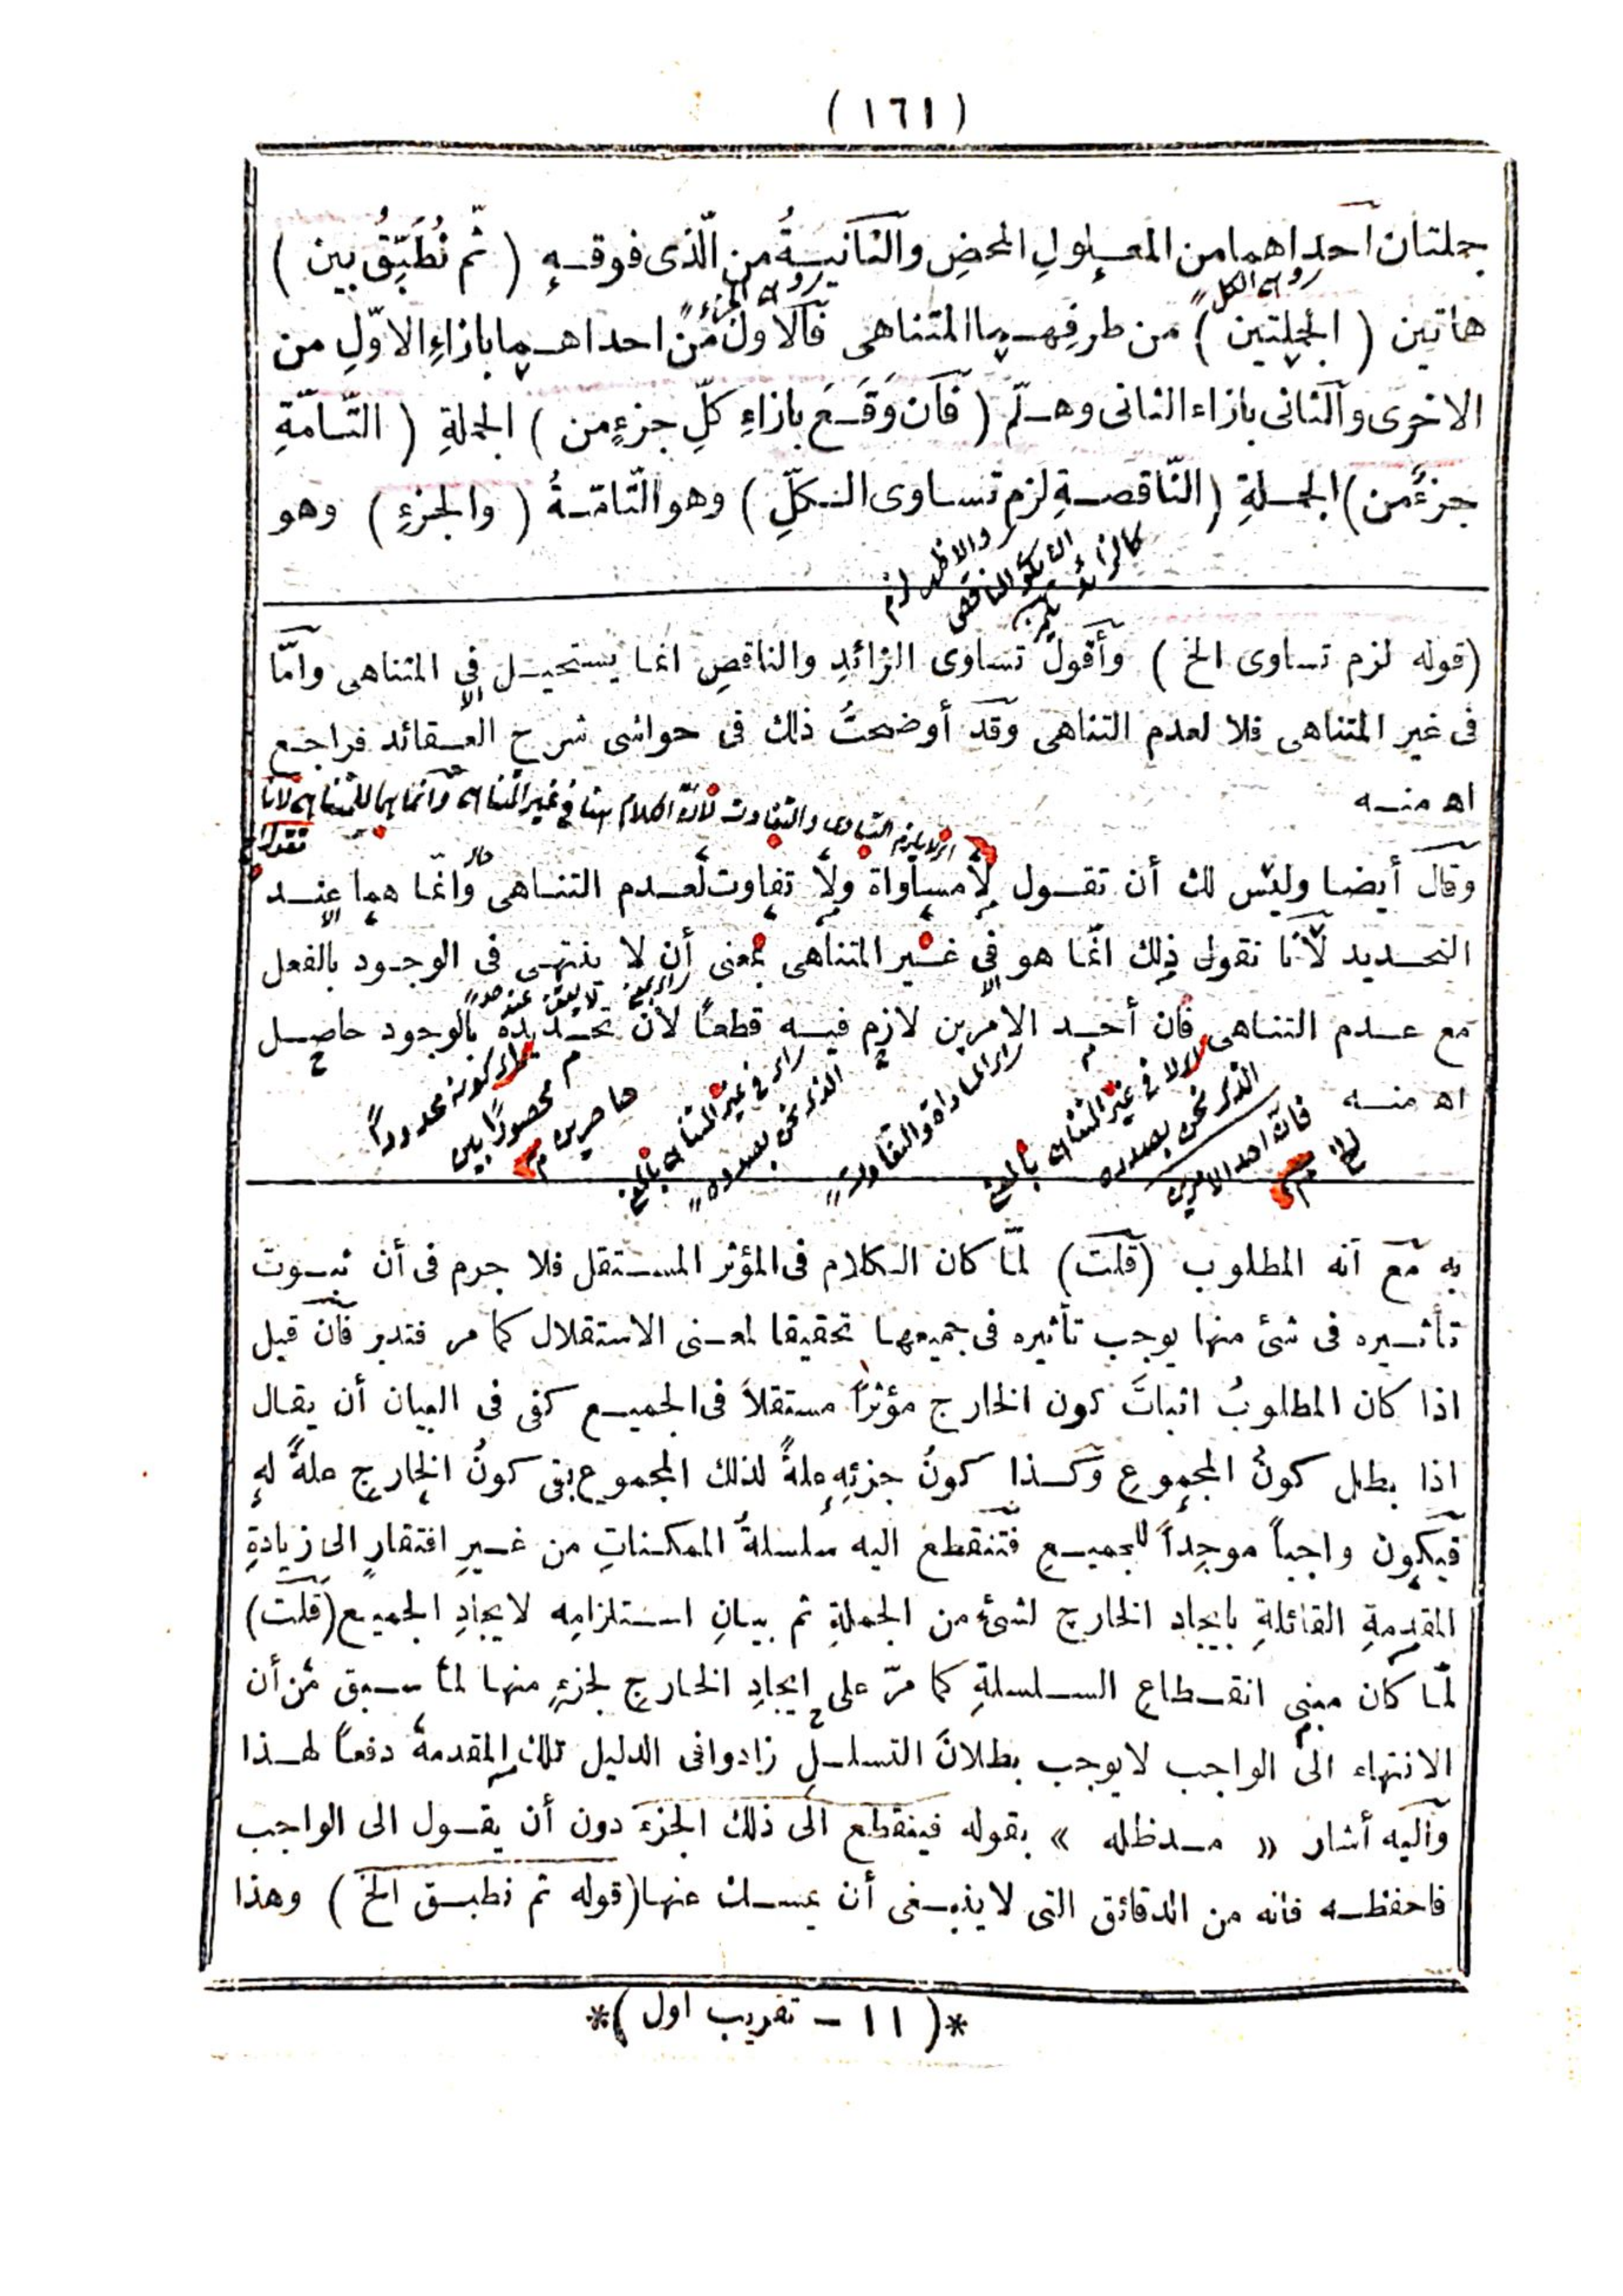 ( ١٦١ )
جملتان احداهما من المعلولِ المحضِ والثانيـةُ من الّذى فوقـهِ ( ثمّ نُطَبِّقُ بين )
وهى الكل
هاتين ( الجملتين ) من طرفِهـما المتناهى فالاولُ مّن احداهـما بازاءِ الاوّلِ من
الاخرى والثانى بازاء الثانى وهـلّم ( فان وَقَـعَ بازاءِ كلِّ جزءٍ من ) الجملةِ ( التّـامّةِ
جزءٌ من ) الجمـلةِ ( النّاقصـةِ لزم تسـاوى الـكلِّ ) وهو التّامّـةُ ( والجزءِ ) وهو
والاظهر لزم
(قوله لزم تساوى الخ ) وأقولُ تساوى الزائدِ والناقصِ انما يستحيـل فى المتناهى وامّا
فى غير المتناهى فلا لعدم التناهى وقد أوضحتُ ذلك فى حواشى شرح العـقائد فراجـع
اهـ منـه
وقال أيضـا وليس لك أن تقـول لامساواة ولا تفاوت لعـدم التنـاهى وانمّـا هما عنـد
التحـديد لأنا نقول ذلك انّما هو فى غـير المتناهى بمعنى أن لا ينتهـى فى الوجـود بالفعل
مع عـدم التنـاهى فان أحـد الامرين لازم فيـه قطعـًا لان تحـديده بالوجود حاصـل
اهـ منـه
كونه محدوداً
محصورًا بين
حاصرين
الذى نحن بصدده
الذى نحن بصدده
فانه احد الامرين
به مع انه المطلوب (قلت) لمّـا كان الـكلام فى المؤثر المسـتقل فلا جرم فى أن ثبـوت
تأثـيره فى شئ منها يوجب تأثيره فى جميعهـا تحقيقا لمعـنى الاستقلال كما مر فتدبر فان قيل
اذا كان المطلوبُ اثباتَ كون الخارج مؤثراً مستقلاً فى الجميـع كفى فى البيان أن يقـال
اذا بطل كونُ المجموعِ وكـذا كونُ جزئِهِ علةً لذلك المجموع بقى كونُ الخارجِ علةً لهِ
فيكون واجباً موجِداً للجميـعِ فتنقطع اليه سلسلةُ الممكـناتِ من غـيرِ افتقارٍ الى زيادةِ
المقدمةِ القائلةِ بايجاد الخارج لشئٍ من الجملةِ ثم بيـانِ اسـتلزامِه لايجادِ الجميـع (قلت)
لمّـا كان مبنى انقـطاعِ السـلسلةِ كما مرّ على ايجادِ الخـارجِ لجزءٍ منهـا لما سـبق من أن
الانتهاء الى الواجب لايوجب بطلانَ التسلسـلِ زادوا فى الدليل تلك المقدمةَ دفعـاً لهـذا
واليه أشار « مـدظله » بقوله فينقطع الى ذلك الجزء دون أن يقـول الى الواجب
فاحفظـه فانه من الدقائق التى لاينبـغى أن يمسـك عنهـا (قوله ثم نطبـق الخ ) وهذا
*( ١١ – تقريب اول )*